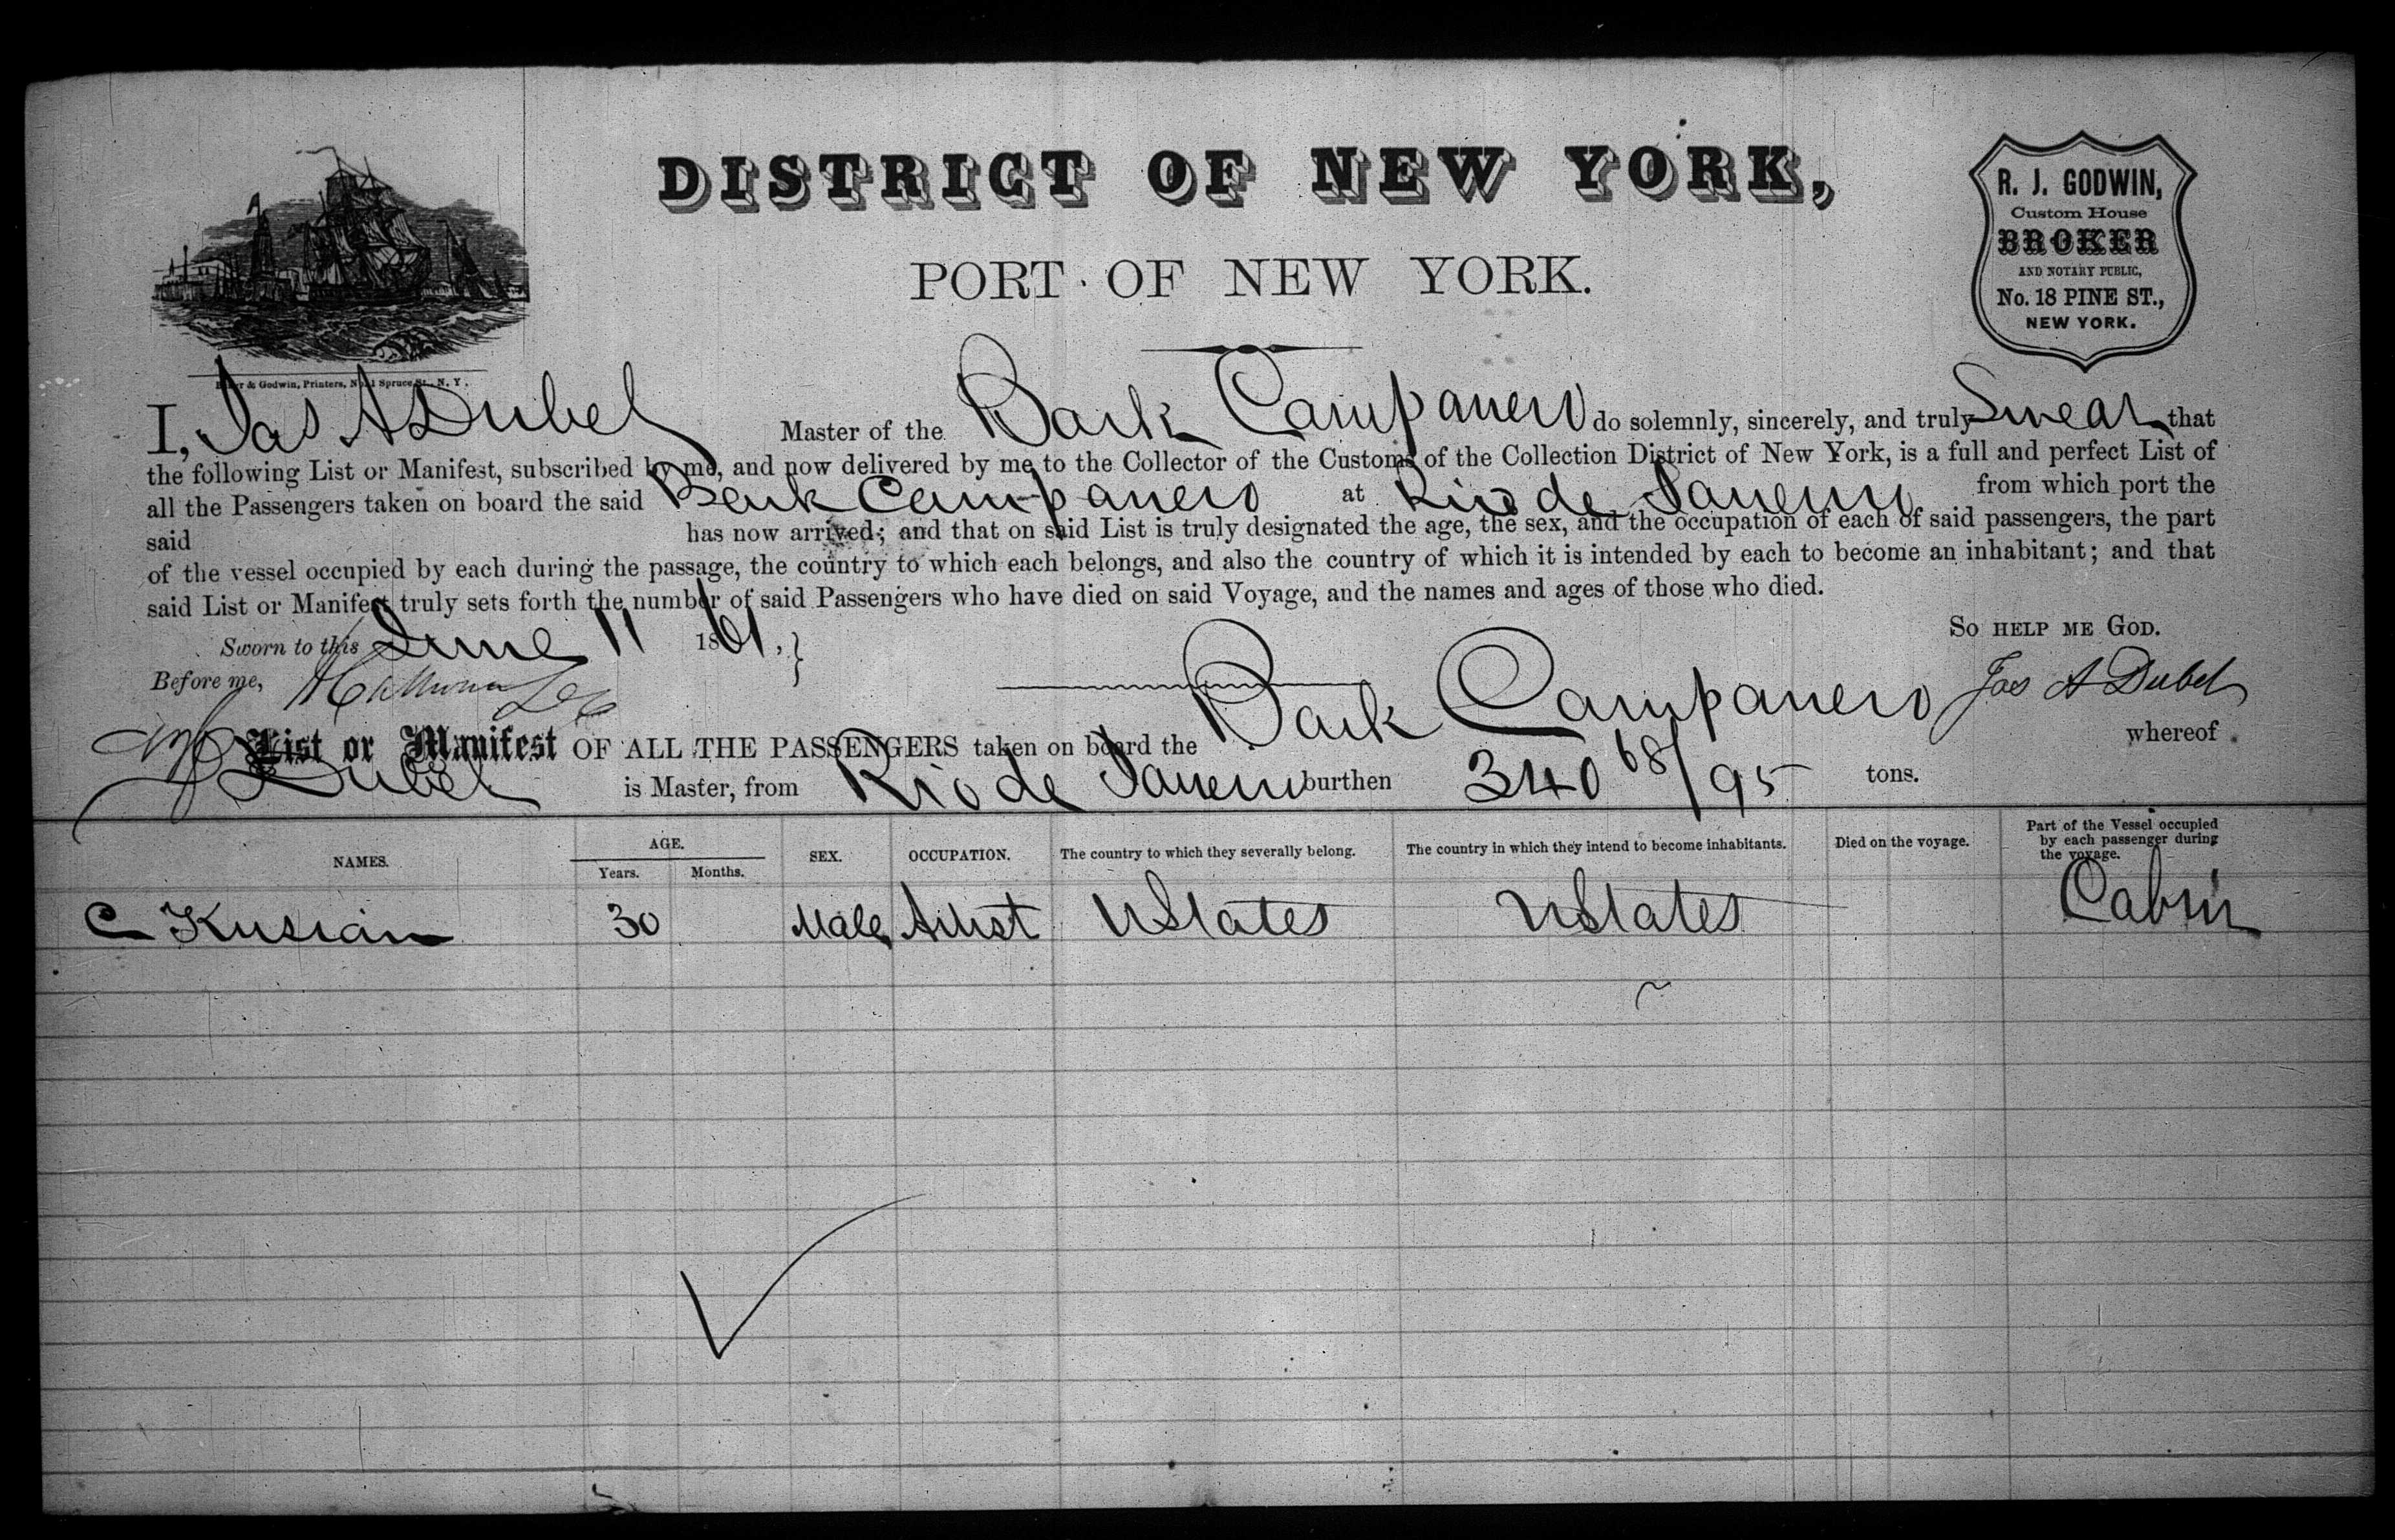 DISTRICT OF NEW YORK,
PORT OF NEW YORK.
R. J. GODWIN,
Custom House
BROKER
AND NOTARY PUBLIC,
No. 18 PINE ST.,
NEW YORK.
& Godwin, Printers, No. 1 Spruce St., N. Y.
I, Jas A Dubel Master of the Bark Campanero do solemnly, sincerely, and truly Swear that
the following List or Manifest, subscribed by me, and now delivered by me to the Collector of the Customs of the Collection District of New York, is a full and perfect List of
all the Passengers taken on board the said Bark Campanero at Rio de Janeiro from which port the
said has now arrived; and that on said List is truly designated the age, the sex, and the occupation of each of said passengers, the part
of the vessel occupied by each during the passage, the country to which each belongs, and also the country of which it is intended by each to become an inhabitant; and that
said List or Manifest truly sets forth the number of said Passengers who have died on said Voyage, and the names and ages of those who died.
So HELP ME GOD.
Sworn to this June 11 1861,
Before me,
Jas A Dubel
List or Manifest OF ALL THE PASSENGERS taken on board the Bark Campanero whereof
Dubel is Master, from Rio de Janeiro burthen 340 68/95 tons.
NAMES. AGE. Years. Months. SEX. OCCUPATION. The country to which they severally belong. The country in which they intend to become inhabitants. Died on the voyage. Part of the Vessel occupied by each passenger during the voyage.
C Kusian 30 Male Artist UStates UStates Cabin